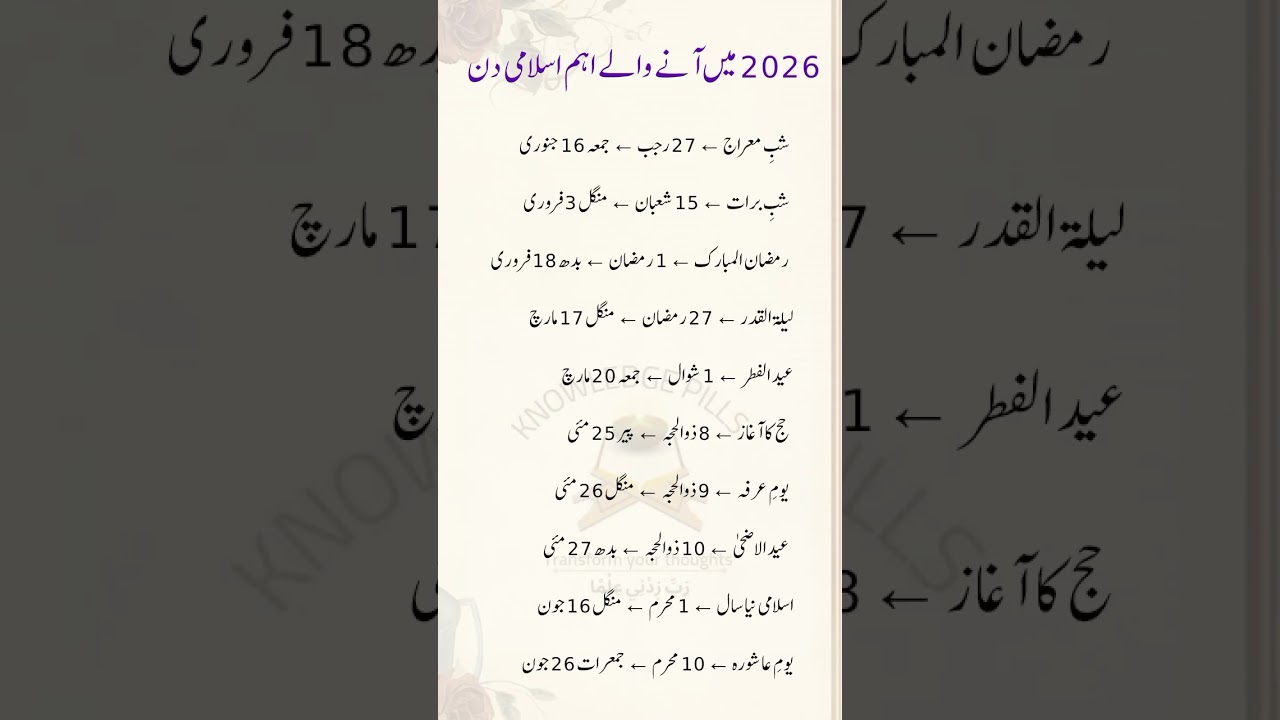 2026 میں آنے والے اہم اسلامی دن
شبِ معراج ← 27 رجب ← جمعہ 16 جنوری
شبِ برات ← 15 شعبان ← منگل 3 فروری
رمضان المبارک ← 1 رمضان ← بدھ 18 فروری
لیلۃ القدر ← 27 رمضان ← منگل 17 مارچ
عید الفطر ← 1 شوال ← جمعہ 20 مارچ
حج کا آغاز ← 8 ذوالحجہ ← پیر 25 مئی
یومِ عرفہ ← 9 ذوالحجہ ← منگل 26 مئی
عید الاضحیٰ ← 10 ذوالحجہ ← بدھ 27 مئی
اسلامی نیا سال ← 1 محرم ← منگل 16 جون
یومِ عاشورہ ← 10 محرم ← جمعرات 26 جون
KNOWLEDGE PILLS
Transform your thoughts
رَبِّ زِدْنِي عِلْمًا